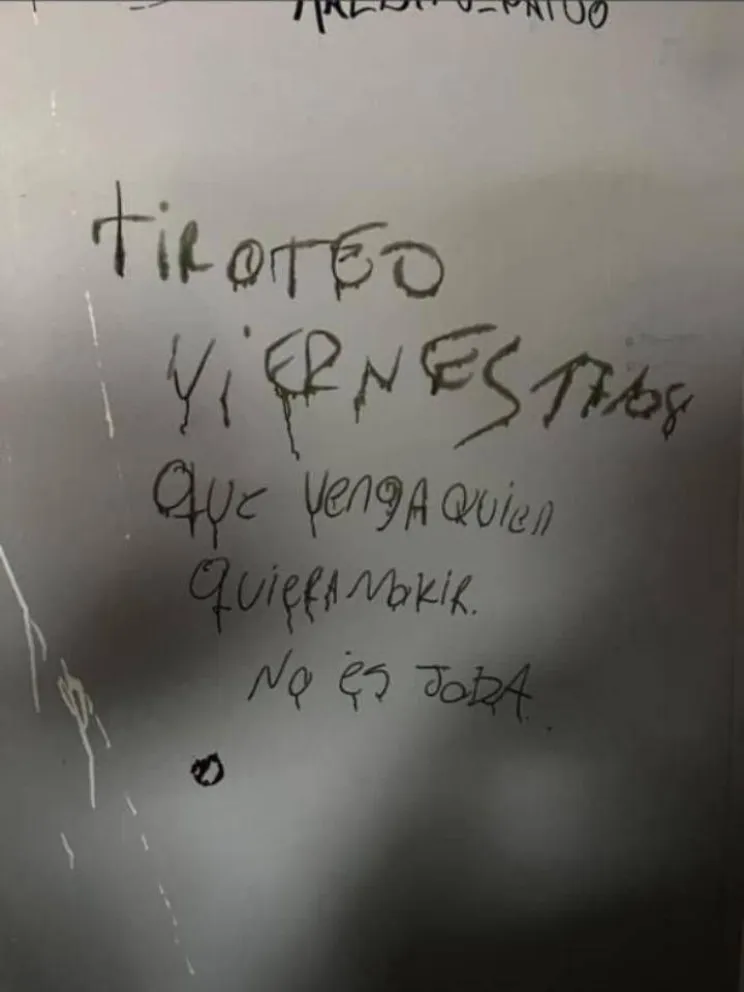 TIROTEO
VIERNES
QUE VENGA QUIEN
QUIERA MORIR.
NO ES JODA.